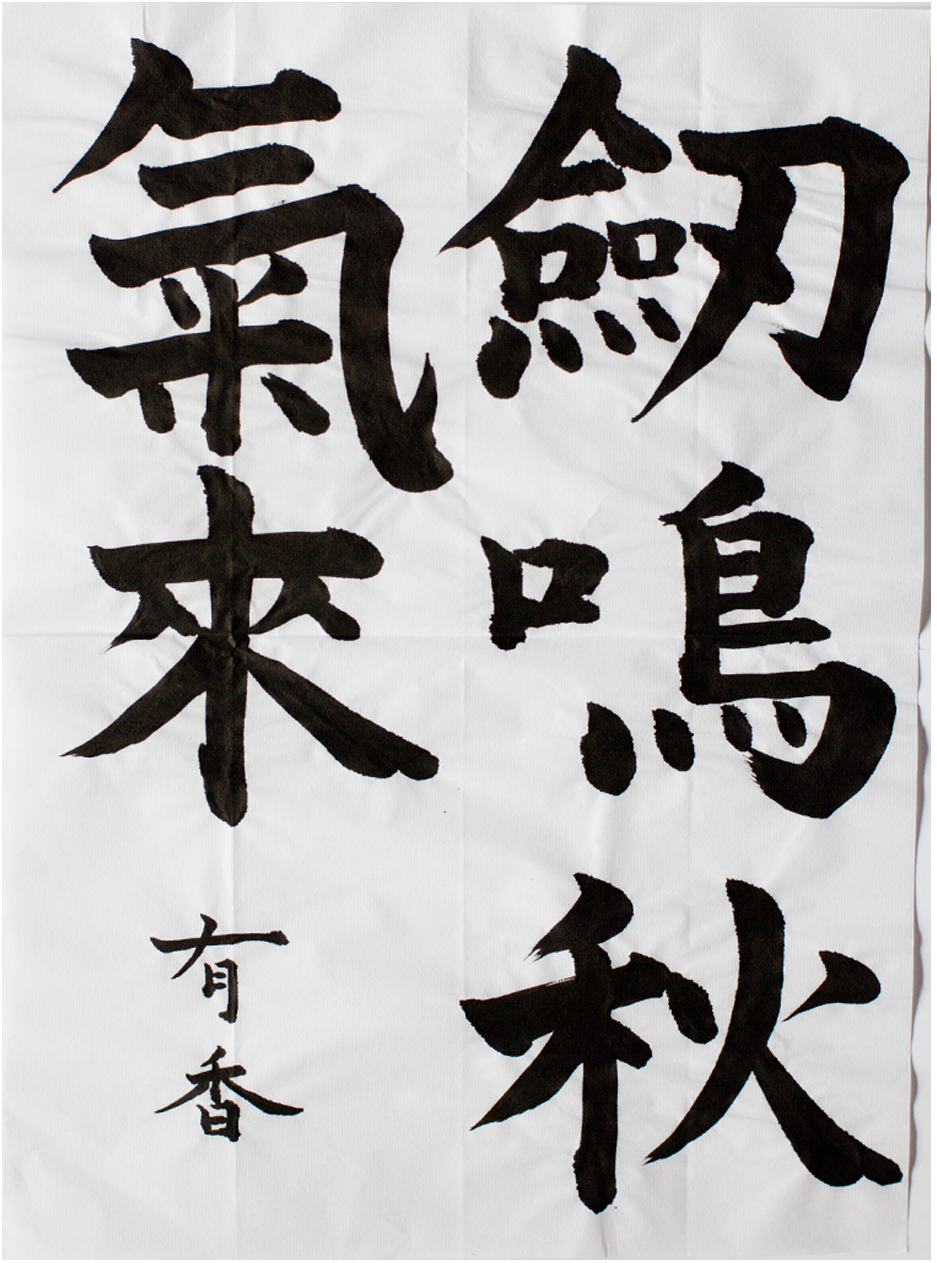 劒鳴秋
氣來
有香